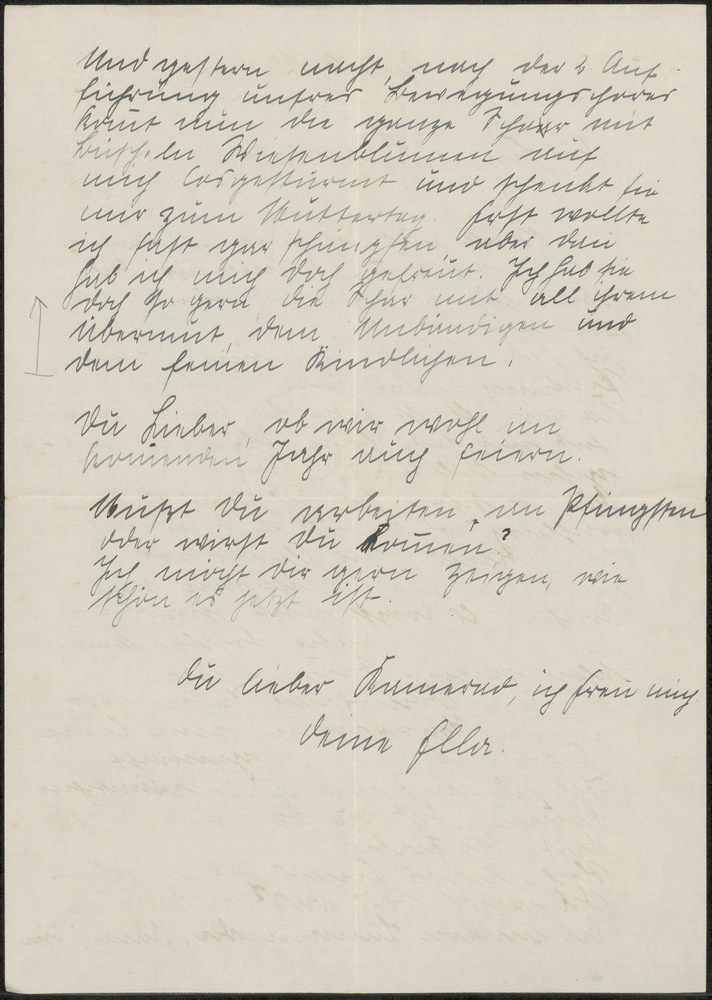 Und gestern nacht, nach der 2. Auf-
führung unsres Bewegungschores
kommt nun die ganze Schaar mit
Büscheln Wiesenblumen auf
mich losgestürmt und schenkt sie
mir zum Muttertag. Erst wollte
ich fast gar schimpfen, aber dan
hab ich mich doch gefreut. Ich hab sie
doch so gern, die Schar mit all ihrem
Übermut, dem Unbändigen und
dem feinen Kindlichen.
Du Lieber, ob wir wohl im
kommenden Jahr auch feiern.
Mußt Du arbeiten, an Pfingsten
oder wirst Du kommen?
Ich möcht dir gern zeigen, wie
schön es jetzt ist.
Du lieber Kamerad, ich freu mich
deine Ella.